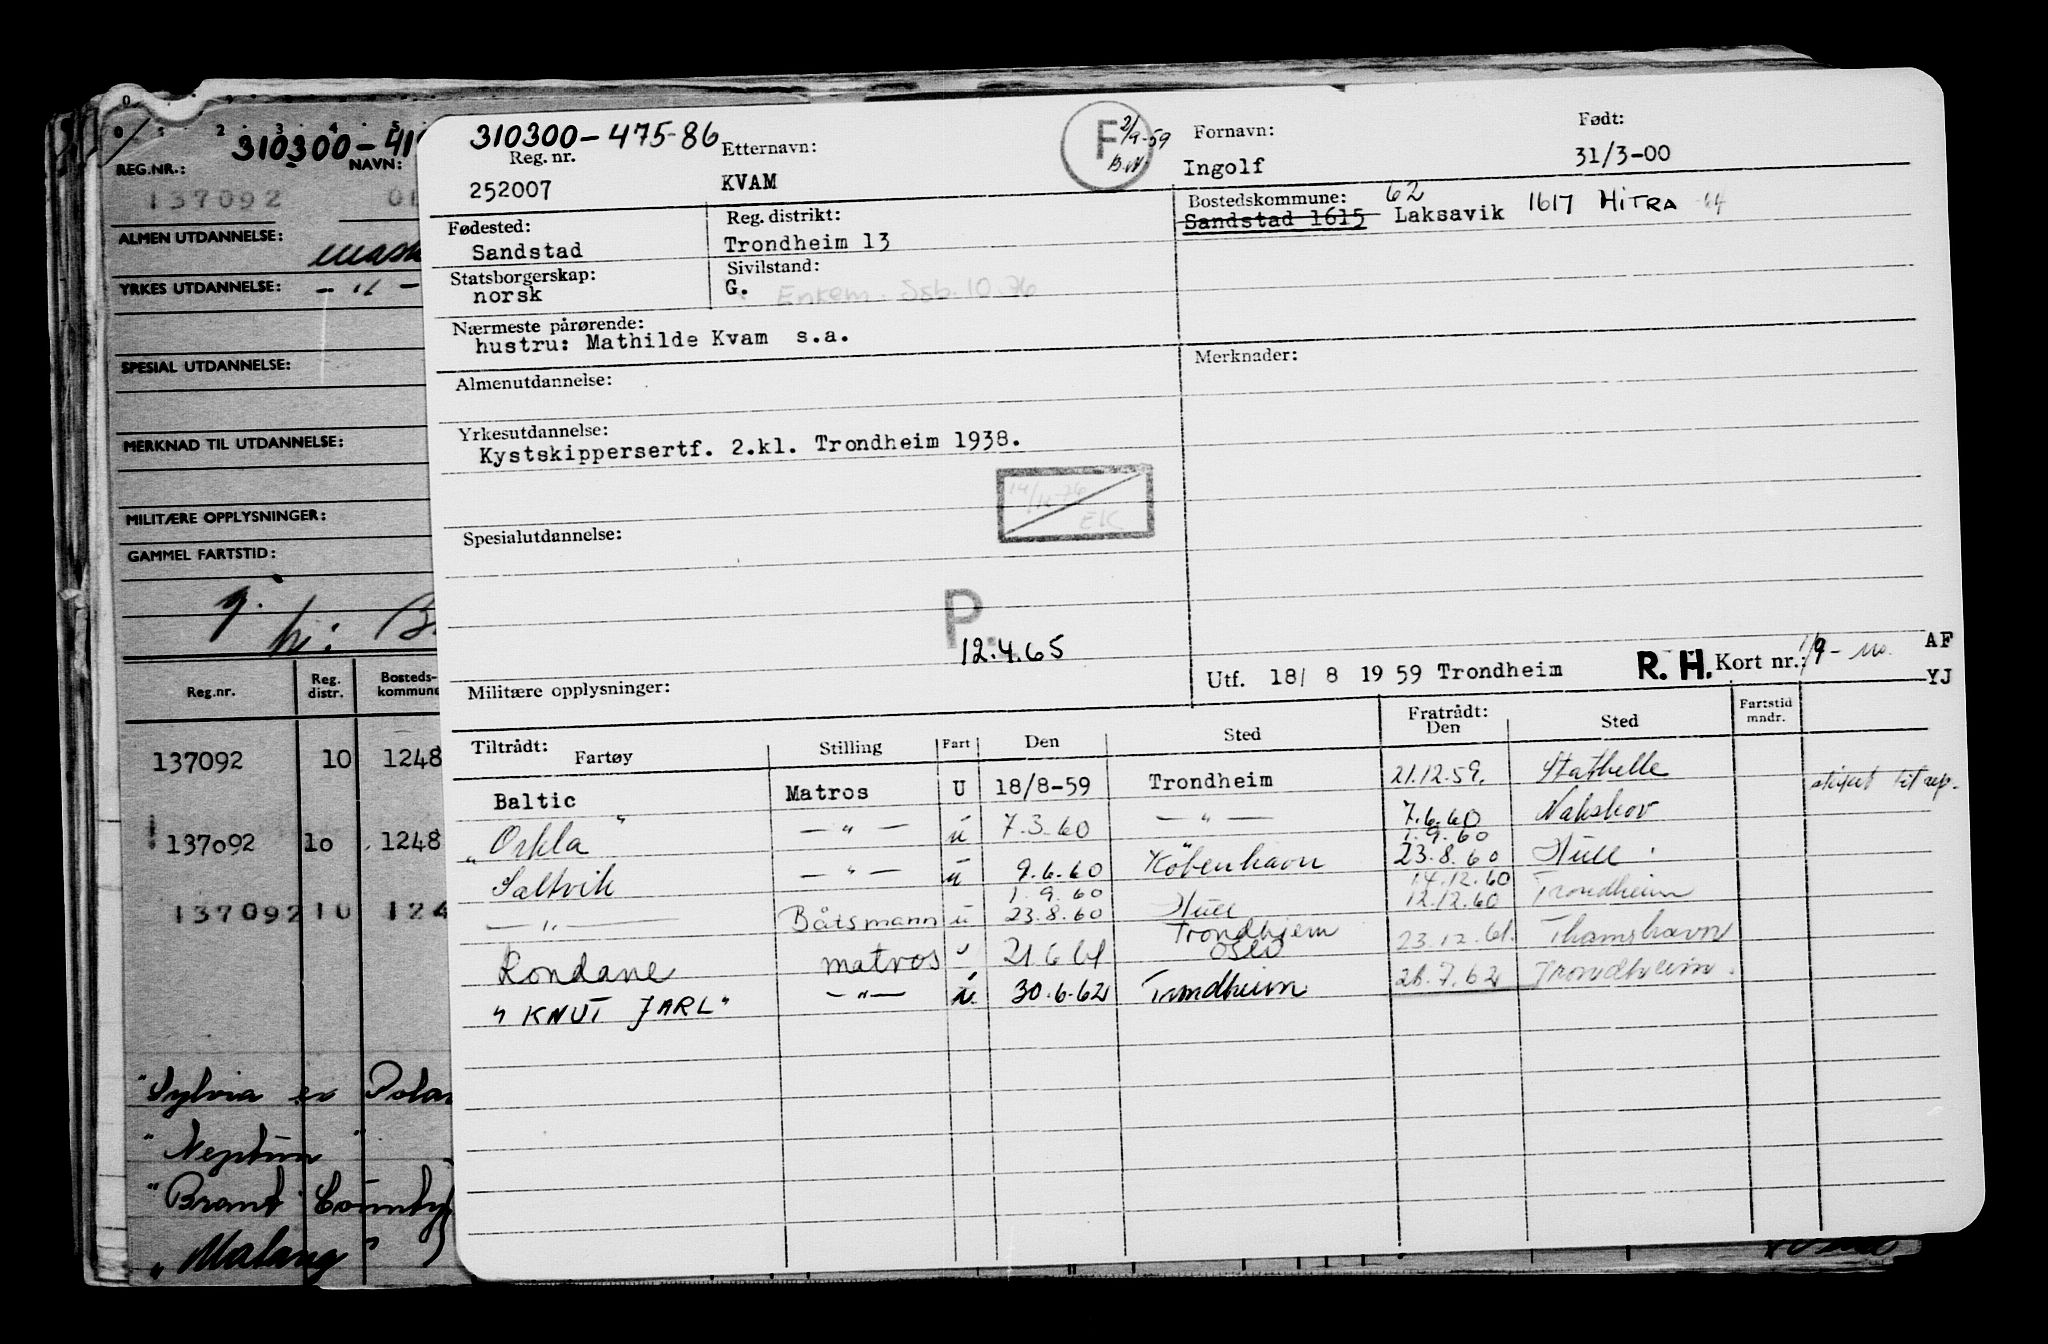 310300-41
REG.NR.:
NAVN:
137092
ALMEN UTDANNELSE:
YRKES UTDANNELSE: - " -
SPESIAL UTDANNELSE:
MERKNAD TIL UTDANNELSE:
MILITÆRE OPPLYSNINGER:
GAMMEL FARTSTID:
Reg.nr. Reg. distr. Bosteds-kommune
137092 10 1248
137o92 1o 1248
137092 10 124
"Sylvia ex Polar
"Neptun"
"Brant County
"Malang"
310300-475-86
Reg. nr.
252007
Etternavn:
KVAM
F 2/9-59
B.N.
Fornavn:
Ingolf
Født:
31/3-00
Fødested:
Sandstad
Reg. distrikt:
Trondheim 13
Bostedskommune: 62
Sandstad 1615 Laksavik 1617 HITRA 64
Statsborgerskap:
norsk
Sivilstand:
G. Enkem. Ssb. 10.76
Nærmeste pårørende:
hustru: Mathilde Kvam s.a.
Merknader:
Almenutdannelse:
Yrkesutdannelse:
Kystskippersertf. 2.kl. Trondheim 1938.
14/11-76
EK
Spesialutdannelse:
P.
12.4.65
Militære opplysninger:
Utf. 18/ 8 19 59 Trondheim R.H. Kort nr.: 1/9- AF
YJ
Tiltrådt: Fartøy Stilling Fart Den Sted Fratrådt: Den Sted Fartstid mndr.
Baltic Matros U 18/8-59 Trondheim 21.12.59. Stathelle
"Orkla" — " — u 7.3.60 — " — 7.6.60 Nakskov
1.9.60
Saltvik — " — u 9.6.60 København 23.8.60 Hull
1.9.60 14.12.60
— " — Båtsmann u 23.8.60 Hull 12.12.60 Trondheim
Trondhjem
Rondane matros u 21.6.61 Oslo 23.12.61. Thamshavn
"KNUT JARL" — " — u. 30.6.62 Trondheim 28.7.62 Trondheim.